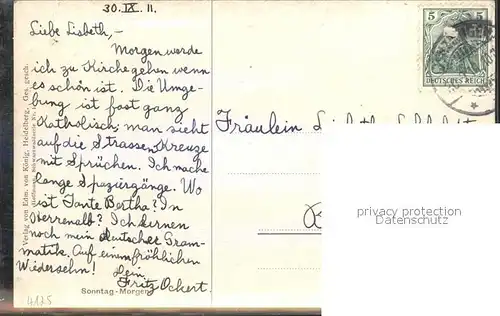 30. IX. 11.
Liebe Lisbeth,-
Morgen werde
ich zu Kirche gehen wenn
es schön ist. Die Umge-
bung ist fast ganz
Katholisch; man sieht
auf die Strassen Kreuze
mit Sprüchen. Ich mache
lange Spaziergänge. Wo
ist Tante Bertha? In
Herrenalb? Ich lernen
noch mein deutscher Gram-
matik. Auf einem fröhlichen
Wiedersehn!
Dein
Fritz Ockert.
Sonntag-Morgen
4125
Verlag von Edm. von König, Heidelberg. Ges. gesch.
Fräulein
5 5
DEUTSCHES REICH
privacy protection
Datenschutz